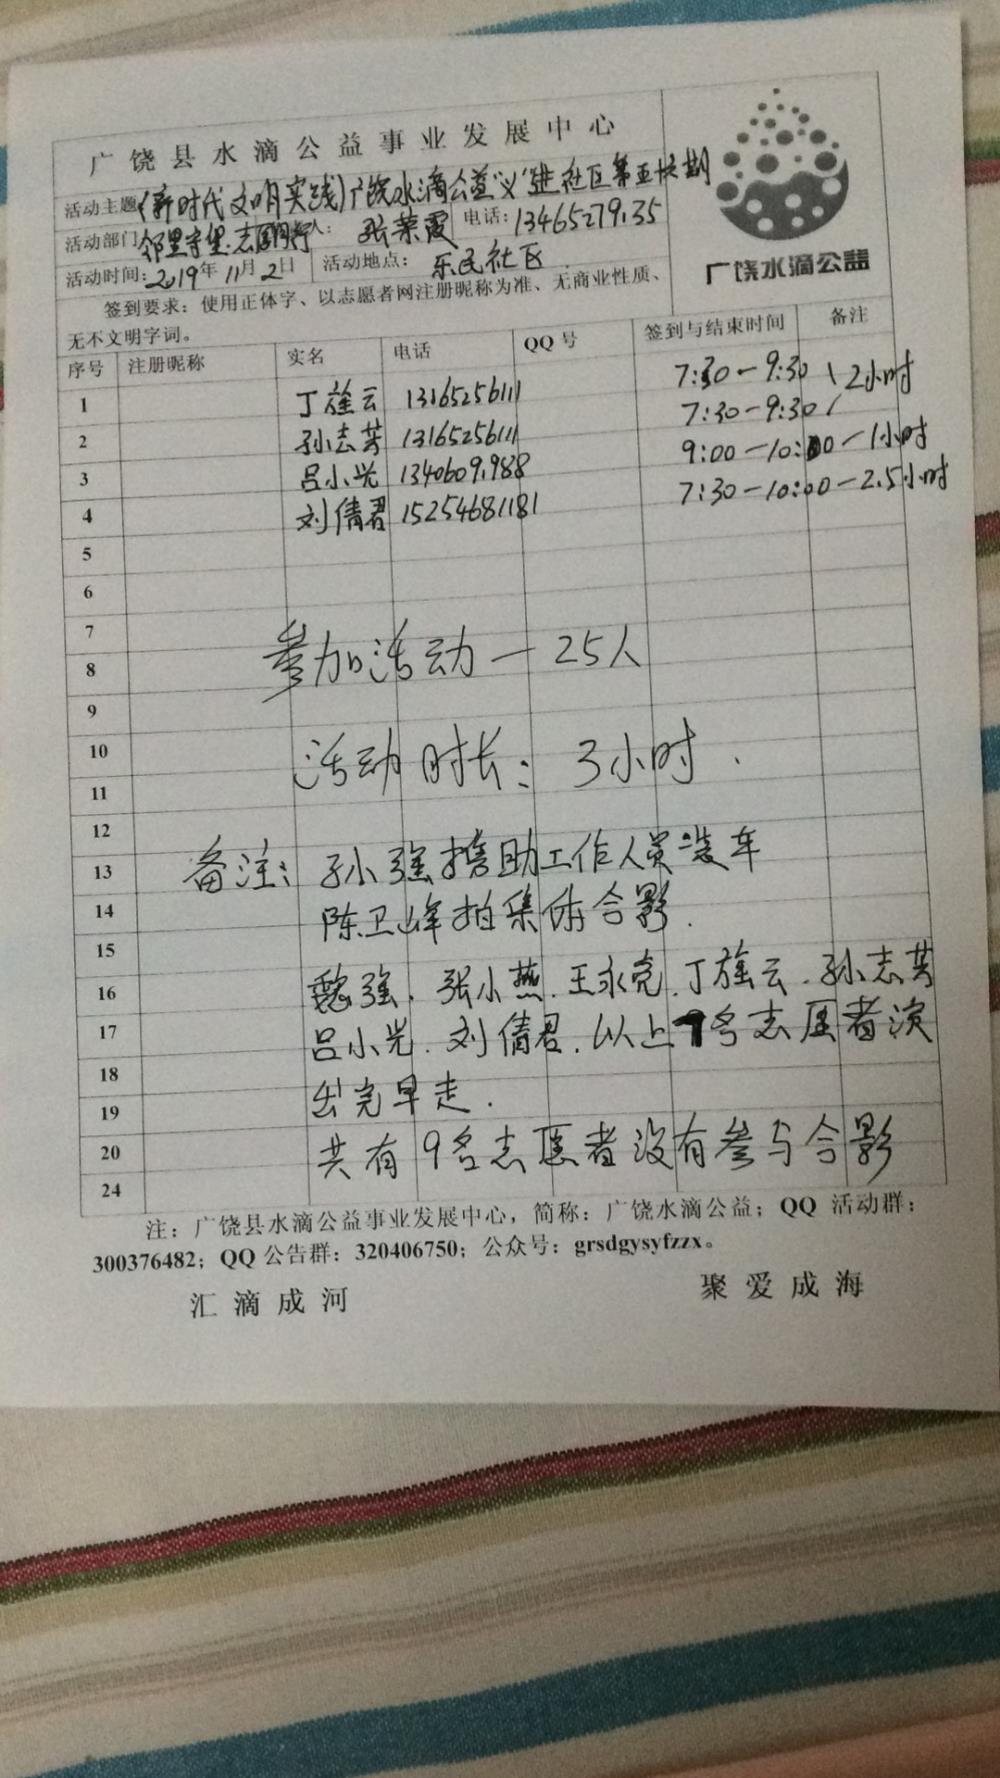 广饶县水滴公益事业发展中心
活动主题：(新时代文明实践)广饶水滴公益"义"进社区第五十期
活动部门：邻里守望 人： 张荣霞 电话：13465279135
活动时间：2019年11月2日 活动地点： 乐民社区
广饶水滴公益
签到要求：使用正体字、以志愿者网注册昵称为准、无商业性质、
无不文明字词。
序号 注册昵称 实名 电话 QQ号 签到与结束时间 备注
1 丁莲云 13165256111 7:30—9:30 2小时
2 孙志芳 13165256111 7:30—9:30
3 吕小光 13406091988 9:00—10:00—1小时
4 刘倩君 15254681181 7:30—10:00—2.5小时
5
6
7
参加活动—25人
8
9
10
活动时长：3小时.
11
12
13 备注：孙强携助工作人员装车
14 陈卫峰拍集体合影.
15
16 魏强.张小燕.王永亮.丁莲云.孙志芳
17 吕小光.刘倩君.以上7名志愿者演
18
19 出完早走.
20 共有9名志愿者没有参与合影
24
注：广饶县水滴公益事业发展中心，简称：广饶水滴公益；QQ 活动群：
300376482；QQ 公告群：320406750；公众号：grsdgysyfzzx。
汇滴成河 聚爱成海